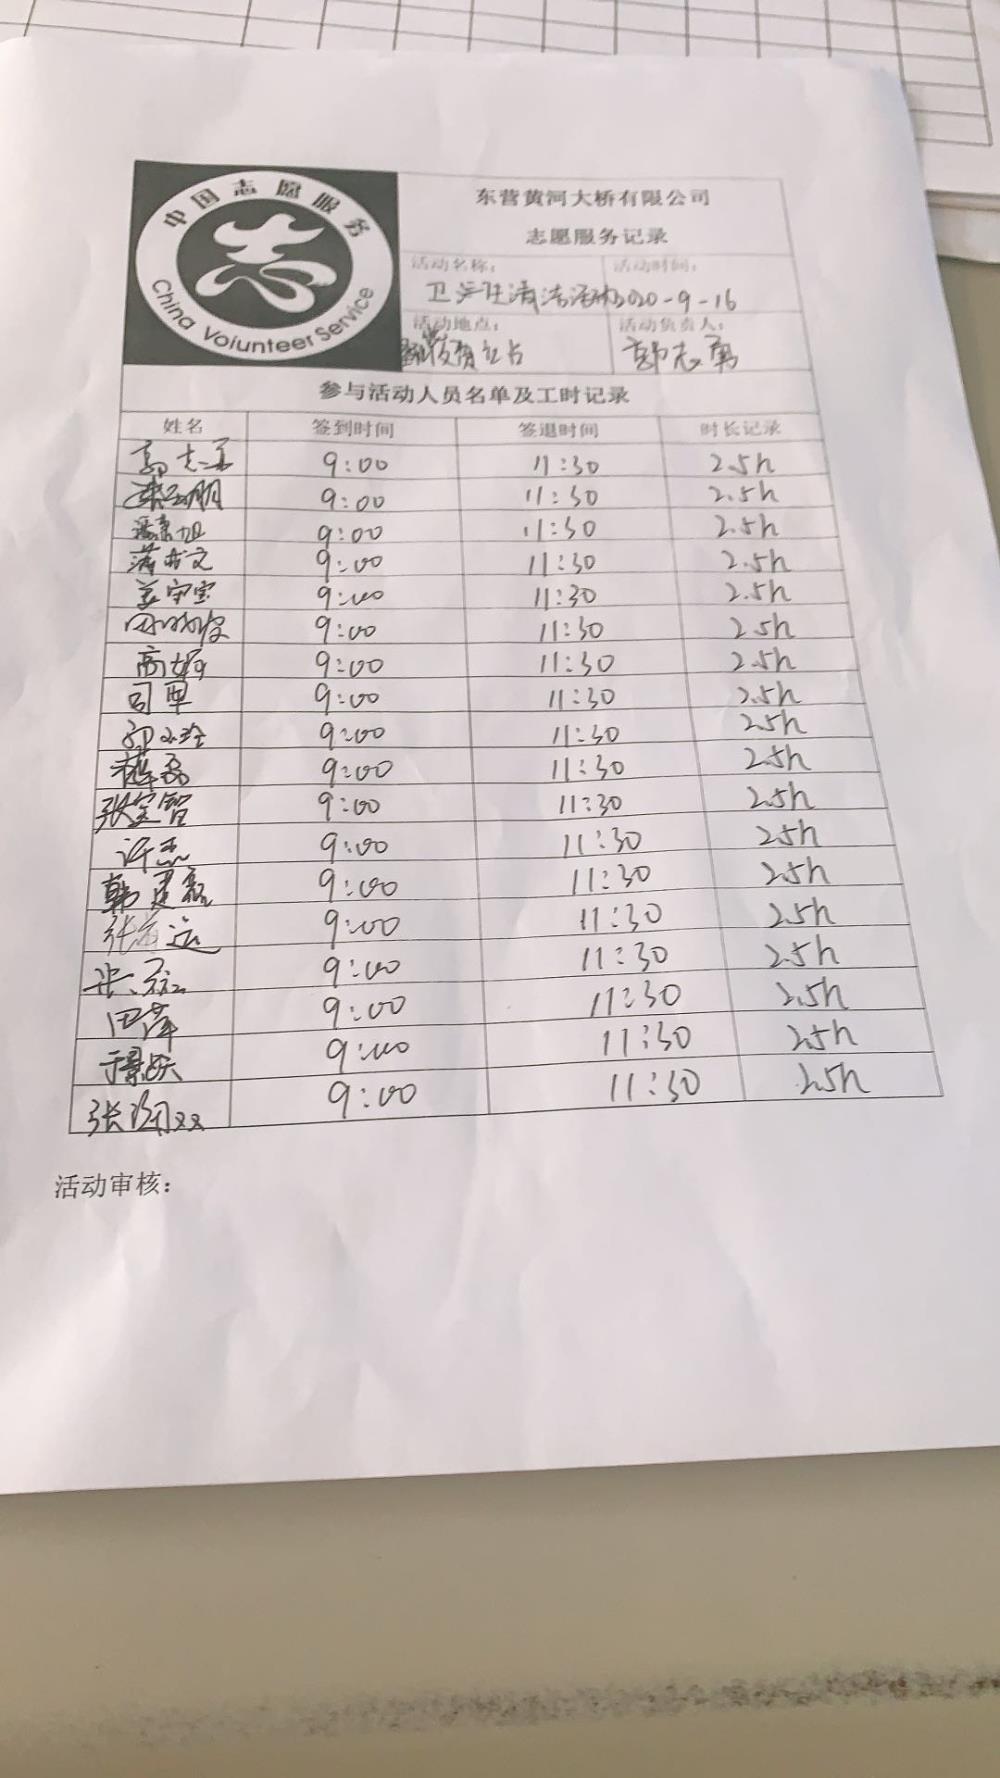 中国志愿服务
China Volunteer Service
东营黄河大桥有限公司
志愿服务记录
活动名称： 活动时间：
卫生清洁活动 2020-9-16
活动地点： 活动负责人：
郭志勇
参与活动人员名单及工时记录
姓名 签到时间 签退时间 时长记录
郭志勇 9:00 11:30 2.5h
9:00 11:30 2.5h
9:00 11:30 2.5h
9:00 11:30 2.5h
姜守宝 9:00 11:30 2.5h
9:00 11:30 2.5h
9:00 11:30 2.5h
司军 9:00 11:30 2.5h
9:00 11:30 2.5h
9:00 11:30 2.5h
张宝智 9:00 11:30 2.5h
许杰 9:00 11:30 2.5h
韩建磊 9:00 11:30 2.5h
张海运 9:00 11:30 2.5h
9:00 11:30 2.5h
田萍 9:00 11:30 2.5h
于景跃 9:00 11:30 2.5h
张 9:00 11:30 2.5h
活动审核：